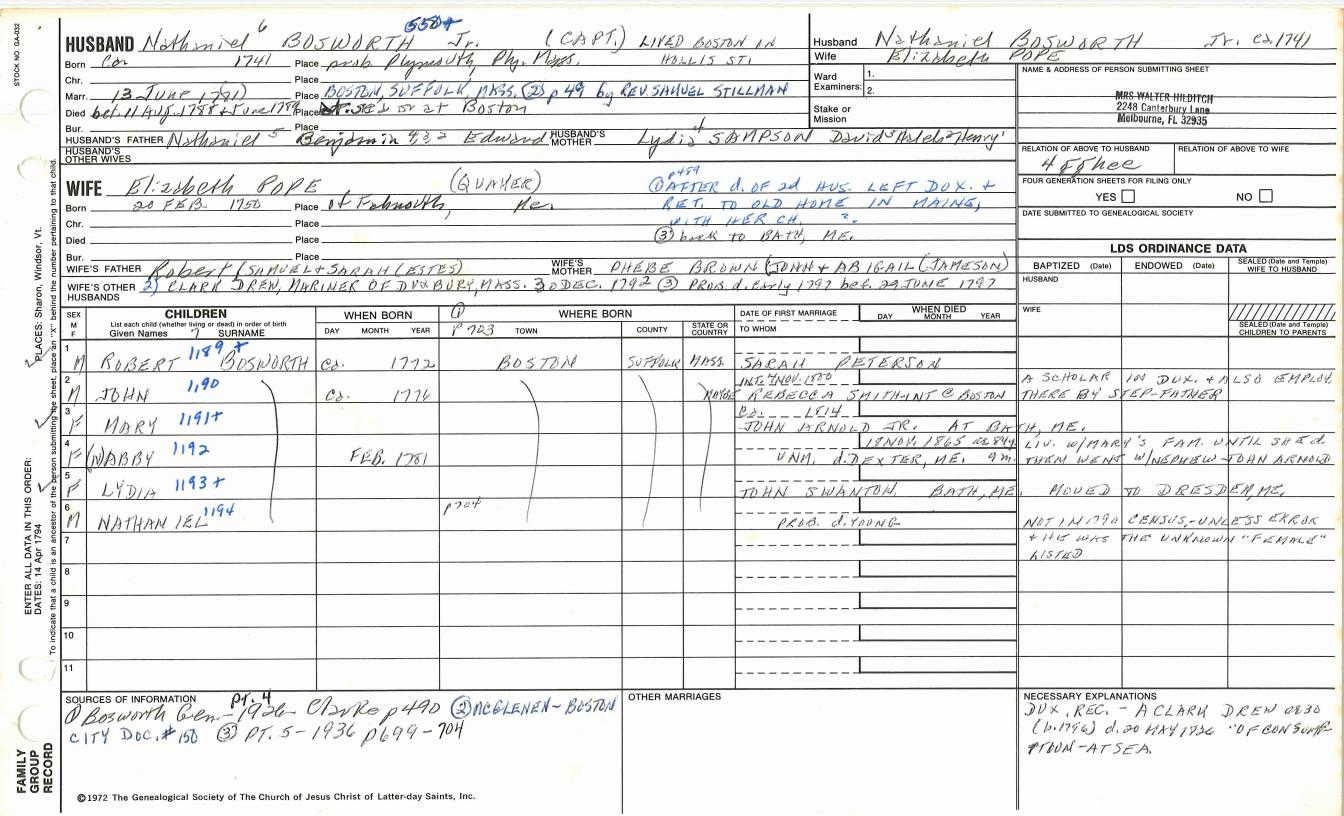 STOCK NO. GA-032
PLACES: Sharon, Windsor, Vt.
ENTER ALL DATA IN THIS ORDER:
DATES: 14 Apr 1794
To indicate that a child is an ancestor of the person submitting the sheet, place an "X" behind the number pertaining to that child.
FAMILY GROUP RECORD
550+
HUSBAND Nathaniel 6 BOSWORTH Jr. (CAPT.) LIVED BOSTON IN
Born Ca. 1741 Place prob Plymouth, Ply. Mass. HOLLIS ST.
Chr. Place
Marr. 13 June 1771 Place BOSTON, SUFFOLK, MASS. (2) p 49 by REV. SAMUEL STILLMAN
Died bet. 11 Aug 1788 + June 1789 Place at sea or at Boston
Bur. Place
HUSBAND'S FATHER Nathaniel 5 Benjamin 4,3,2 Edward 1 HUSBAND'S MOTHER Lydia 4 SAMPSON David 3 Caleb 2 Henry 1
HUSBAND'S OTHER WIVES
WIFE Elizabeth POPE (QUAKER)
Born 20 FEB. 1750 Place of Falmouth, Me.
Chr. Place
Died Place
Bur. Place
p 489
(1) AFTER d. OF 2d HUS. LEFT DUX. +
RET. TO OLD HOME IN MAINE,
WITH HER CH. ?.
(3) back to BATH, ME.
WIFE'S FATHER Robert (SAMUEL + SARAH (ESTES) WIFE'S MOTHER PHEBE BROWN (JOHN + ABIGAIL (JAMESON)
WIFE'S OTHER HUSBANDS 2) CLARK DREW, MARINER OF DUXBURY, MASS. 30 DEC. 1792 (3) PROB. d. early 1797 bef. 29 JUNE 1797
Husband Nathaniel BOSWORTH Jr. Ca. 1741
Wife Elizabeth POPE
Ward Examiners: 1.
2.
Stake or Mission
NAME & ADDRESS OF PERSON SUBMITTING SHEET
MRS WALTER HILDITCH
2248 Canterbury Lane
Melbourne, FL 32935
RELATION OF ABOVE TO HUSBAND RELATION OF ABOVE TO WIFE
FOUR GENERATION SHEETS FOR FILING ONLY
YES NO
DATE SUBMITTED TO GENEALOGICAL SOCIETY
LDS ORDINANCE DATA
BAPTIZED (Date) ENDOWED (Date) SEALED (Date and Temple) WIFE TO HUSBAND
HUSBAND
WIFE
SEALED (Date and Temple) CHILDREN TO PARENTS
SEX M F CHILDREN List each child (whether living or dead) in order of birth Given Names 7 SURNAME
WHEN BORN DAY MONTH YEAR
(1) p 703 WHERE BORN TOWN COUNTY STATE OR COUNTRY
DATE OF FIRST MARRIAGE TO WHOM
WHEN DIED DAY MONTH YEAR
1 M ROBERT 1189+ BOSWORTH Ca. 1772 BOSTON SUFFOLK MASS. SARAH PETERSON
2 M JOHN 1190 Ca. 1776 INT. 4 NOV. 1800 MAYBE REBECCA SMITH INT @ BOSTON A SCHOLAR IN DUX. + ALSO EMPLOY. THERE BY STEP-FATHER
3 F MARY 1191+ Ca. 1814 JOHN ARNOLD JR. AT BATH, ME.
4 F (N)ABBY 1192 FEB. 1781 18 NOV. 1865 ae 84y 9m. UNM. d. DEXTER, ME. LIV. W/MARY'S FAM. UNTIL SHE d. THEN WENT W/NEPHEW JOHN ARNOLD
5 F LYDIA 1193+ JOHN SWANTON BATH, ME. MOVED TO DRESDEN, ME.
6 M NATHANIEL 1194 p 704 PROB. d. YOUNG NOT IN 1790 CENSUS,-UNLESS ERROR
7 + HE WAS THE UNKNOWN "FEMALE" LISTED
8
9
10
11
SOURCES OF INFORMATION PT. 4
(1) Bosworth Gen - 1926 Clarke p 490 (2) MCGLENEN - BOSTON
CITY DOC. # 150 (3) PT. 5 - 1936 p 699 - 704
OTHER MARRIAGES
NECESSARY EXPLANATIONS
DUX. REC. - A CLARK DREW ae 30
(b. 1796) d. 20 MAY 1826 "OF CONSUMP-
TION - AT SEA.
©1972 The Genealogical Society of The Church of Jesus Christ of Latter-day Saints, Inc.